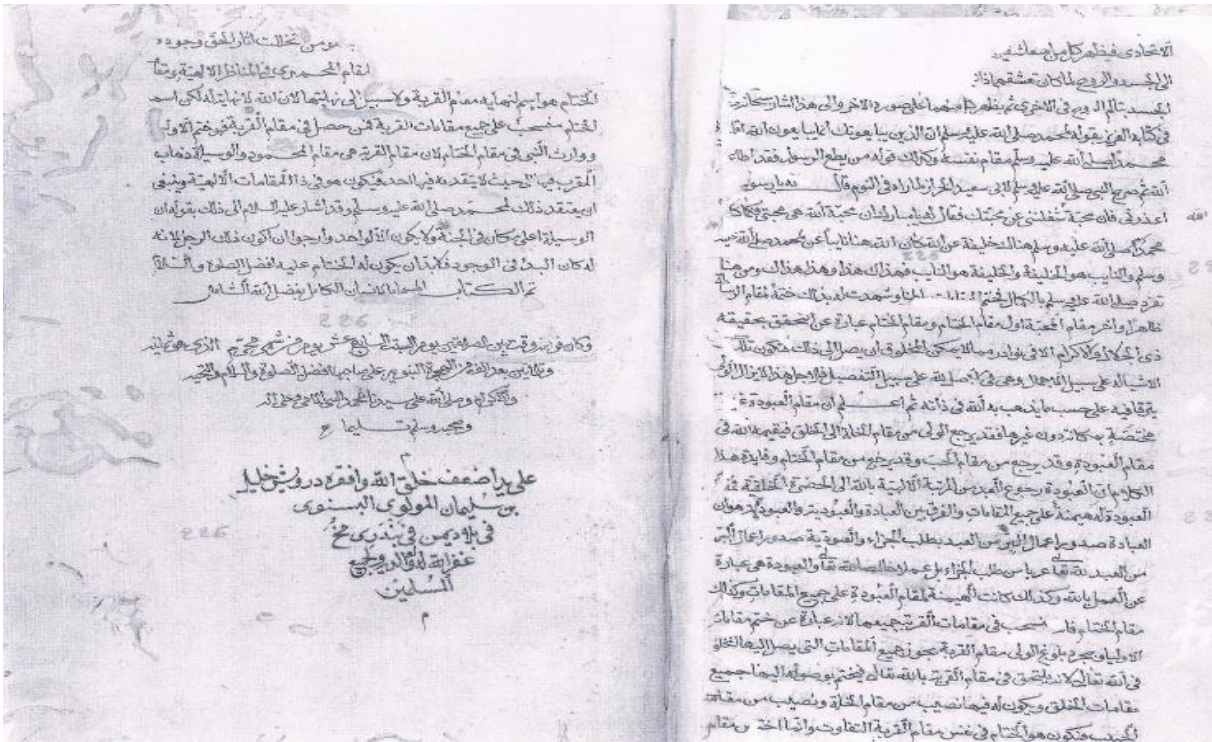 الاتحادى فيظهر كل من المتعاشقين
الى الجسد والروح لما كان تعشقهما ذاتـ
الجسد بتألم الروح فى الاخرى ثم يظهر احدهما على صورة الاخر والى هذا اشار سبحانه
فى كتابه العزيز بقوله لمحمد صلى الله عليه وسلم ان الذين يبايعونك انما يبايعون الله اقا
محمداً صلى الله عليه وسلم مقام نفسه وكذلك قوله من يطع الرسول فقد اطاع
الله ثم صرح النبى صلى الله عليه وسلم لابى سعيد الخراز لما راه فى النوم قال يا رسول
الله
اعذرنى فان محبة الله شغلتنى عن محبتك فقال له يا مبارك ان محبة الله هى محبتى فكما كا
محمد صلى الله عليه وسلم هنا الخليفة عن الله كان الله هنا نايباً عن محمد صلى الله عليه
وسلم والنايب هو الخليفة والخليفة هو النايب فهذاك هذا وهذا هذاك ومن هنا
تفرد صلى الله عليه وسلم بالكمال فختم وشهدت له بذلك ختمه لمقام الرسالة
ظاهراً واخر مقام المحبة اول مقام الختام ومقام الختام عبارة عن التحقق بحقيقة
ذى الجلال والاكرام الا فى نوادر مما لا يمكن المخلوق ان يصل الى ذلك فتكون تلك
الاشياء له على سبيل الاجمال وهى فى الاصل لله على سبيل التفصيل فلاجل هذا لا يزال الولى
يترقى فيه على حسب ما يذهب به الله فى ذاته ثم اعلم ان مقام العبودة غير
مختصة بمكانة دون غيرها فقد يرجع الولى من مقام الخلة الى الخلق فيقيمه الله فى
مقام العبودة وقد يرجع من مقام الحب وقد يرجع من مقام الختام وفايدة هذا
الكلام ان العبودة رجوع العبد من المرتبة الالهية بالله الى الحضرة الخلقية فمقا
العبودة له هيمنة على جميع المقامات والفرق بين العبادة والعبودية والعبودة هو ان
العبادة صدور اعمال البر من العبد بطلب الجزاء والعبودية صدور اعمال البر
من العبد لله تعالى عريا من طلب الجزاء بل عمله خالصا لله تعالى والعبودة هى عبارة
عن العمل بالله وكذلك كانت الهيمنة لمقام العبودة على جميع المقامات وكذلك
مقام الختام فانه منسحب فى مقامات القربة جميعها لانه عبارة عن ختم مقامات
الاولياء بمجرد بلوغ الولى مقام القربة يجوز جميع المقامات التى يصل اليها المخلوق
فى الله تعالى لانه يلتحق فى مقام القربة بالله تعالى فيختم بوصوله اليها جميع
مقامات الخلق ويكون له فيها نصيب من مقام الخلة ونصيب من مقام
الحب فيكون هو الختام فى نفس مقام القربة التفاوت وانما اختـ مقام
ومن تخللت اثار الحق وجوده
المقام المحمدى فى المناظر الالهية ومقا
الختام هو اسم لنهاية مقام القربة ولا سبيل الى نهايتها لان الله لا نهاية له لكن اسم
الختام منسحب على جميع مقامات القربة فمن حصل فى مقام القربة فهو ختم الاوليا
ووارث النبى فى مقام الختام لان مقام القربة هى مقام المحمود والوسيلة لذهاب
المقرب فيها الى حيث لا يتقدمه فيها احد فيكون هو فرد تلك المقامات الالهية وينبغى
ان يعتقد ذلك لمحمد صلى الله عليه وسلم وقد اشار عليه السلام الى ذلك بقوله ان
الوسيلة اعلى مكان فى الجنة ولا يكون الا لواحد وارجو ان اكون ذلك الرجل لانه
له كان البدء فى الوجود فلا بد ان يكون له الختام عليه افضل الصلوة والسلام
تم الكتاب المسمى بالانسان الكامل بفضل الله الشامل
226
وكان فى يوم السبت السابع عشر يوم من شهر محرم الذى هو ثمانية
وثلاثين بعد الهجرة النبوية على صاحبها افضل الصلوة والسلام والتحية
والاكرام وصلى الله على سيدنا محمد النبى الامى وعلى اله
وصحبه وسلم تسليما
على يد اضعف خليقة الله وافقره درويش خليل
بن سليمان المولوى البسنوى
فى بلاد يمن فى بندرى مخا
غفر الله له ولوالديه ولجميع
المسلمين
م
226